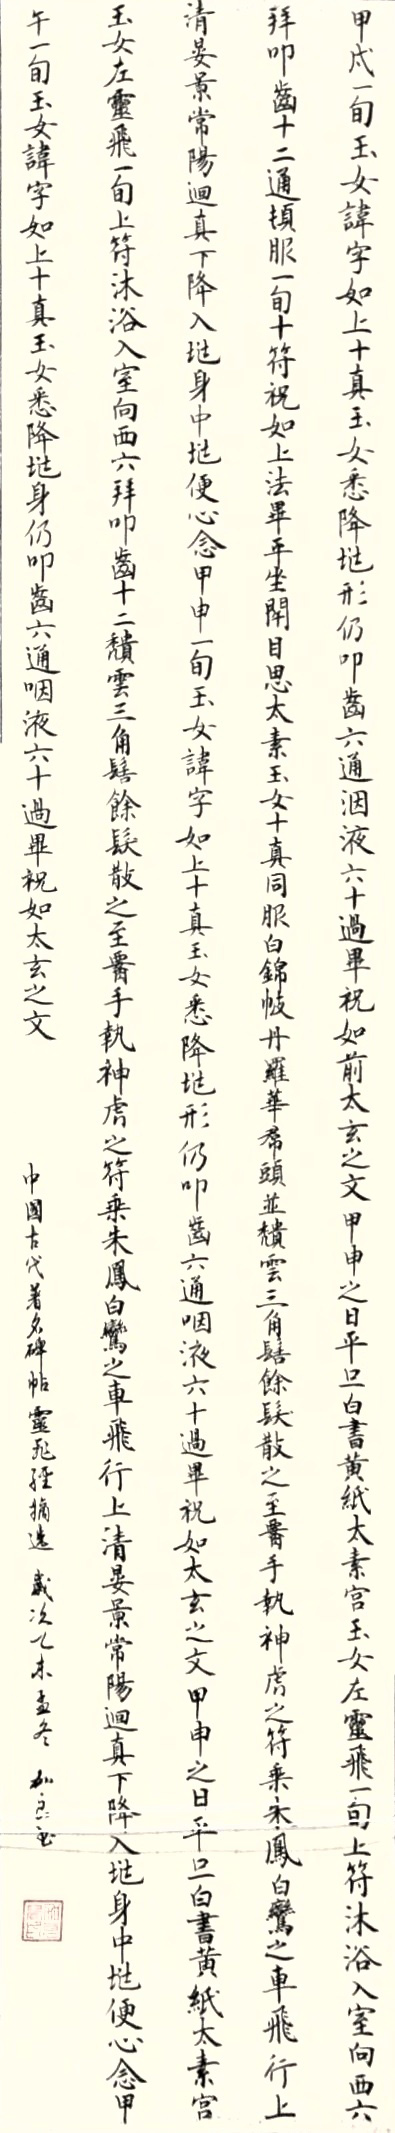 甲戌一旬玉女諱字如上十真玉女悉降㘴形仍叩齒六通咽液六十過畢祝如前太玄之文甲申之日平旦白書黄紙太素宫玉女左靈飛一旬上符沐浴入室向西六
拜叩齒十二通頓服一旬十符祝如上法畢平坐閉目思太素玉女十真同服白錦帔丹羅華帬頭並頽雲三角髻餘髮散之至署手執神虎之符乗朱鳳白鸞之車飛行上
清晏景常陽迴真下降入㘴身中㘴便心念甲申一旬玉女諱字如上十真玉女悉降㘴形仍叩齒六通咽液六十過畢祝如太玄之文甲申之日平旦白書黄紙太素宫
玉女左靈飛一旬上符沐浴入室向西六拜叩齒十二頽雲三角髻餘髮散之至署手執神虎之符乗朱鳳白鸞之車飛行上清晏景常陽迴真下降入㘴身中㘴便心念甲
午一旬玉女諱字如上十真玉女悉降㘴身仍叩齒六通咽液六十過畢祝如太玄之文
中國古代著名碑帖靈飛經摘選 歲次乙未孟冬